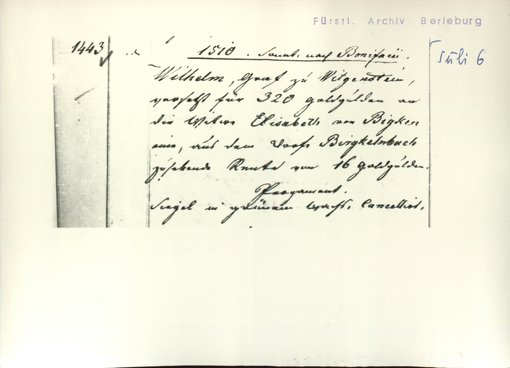 Fürstl. Archiv Berleburg
1443
1510. Sonnt. nach Bonifacii.
Juli 6
Wilhelm, Graf zu Witgenstein,
versetzt für 320 Goldgülden an
die Witwe Elisabeth von Bigken
eine, aus dem Dorfe Birgkelnbach
zu hebende Rente von 16 Goldgülden.
Pergament.
Siegel in grünem Wachs. Cancellirt.